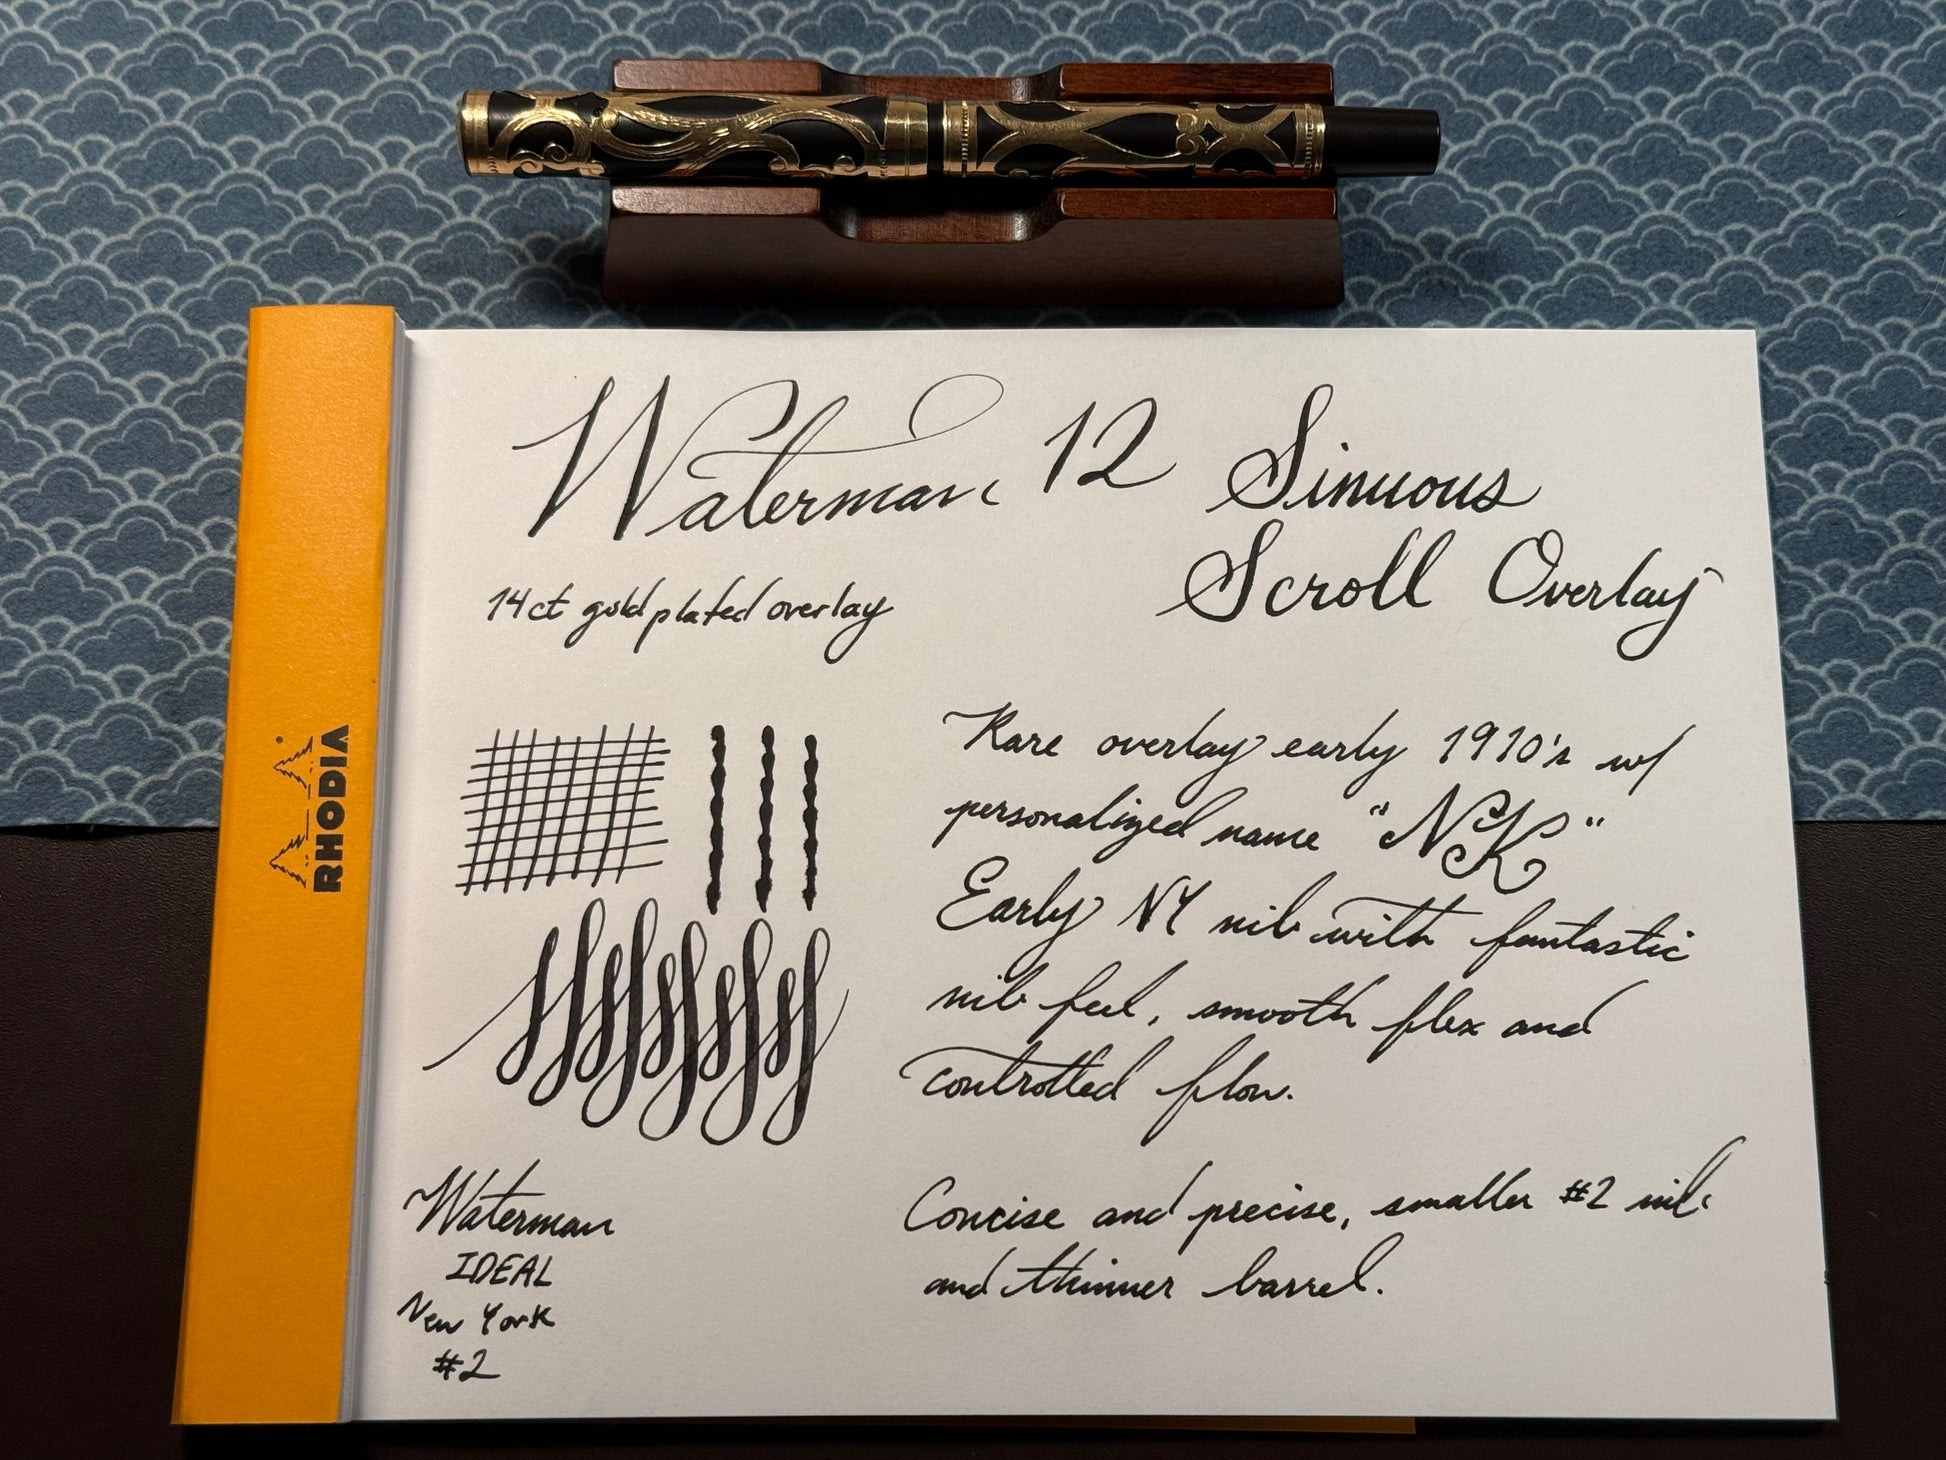 Waterman 12 Sinuous
Scroll Overlay
14ct gold plated overlay
RHODIA
Rare overlay early 1910's w/
personalized name "NK"
Early NY nib with fantastic
nib feel, smooth flex and
controlled flow.
Concise and precise, smaller #2 nib
and thinner barrel.
Waterman
IDEAL
New York
#2